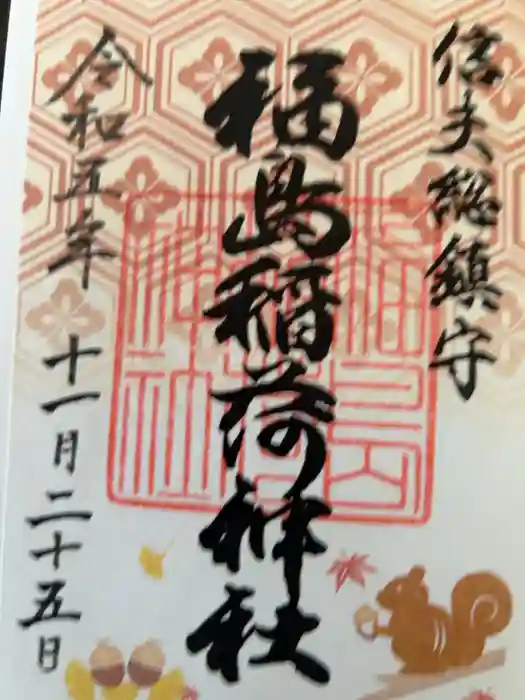 信夫総鎮守
福島稲荷神社
令和五年 十一月二十五日